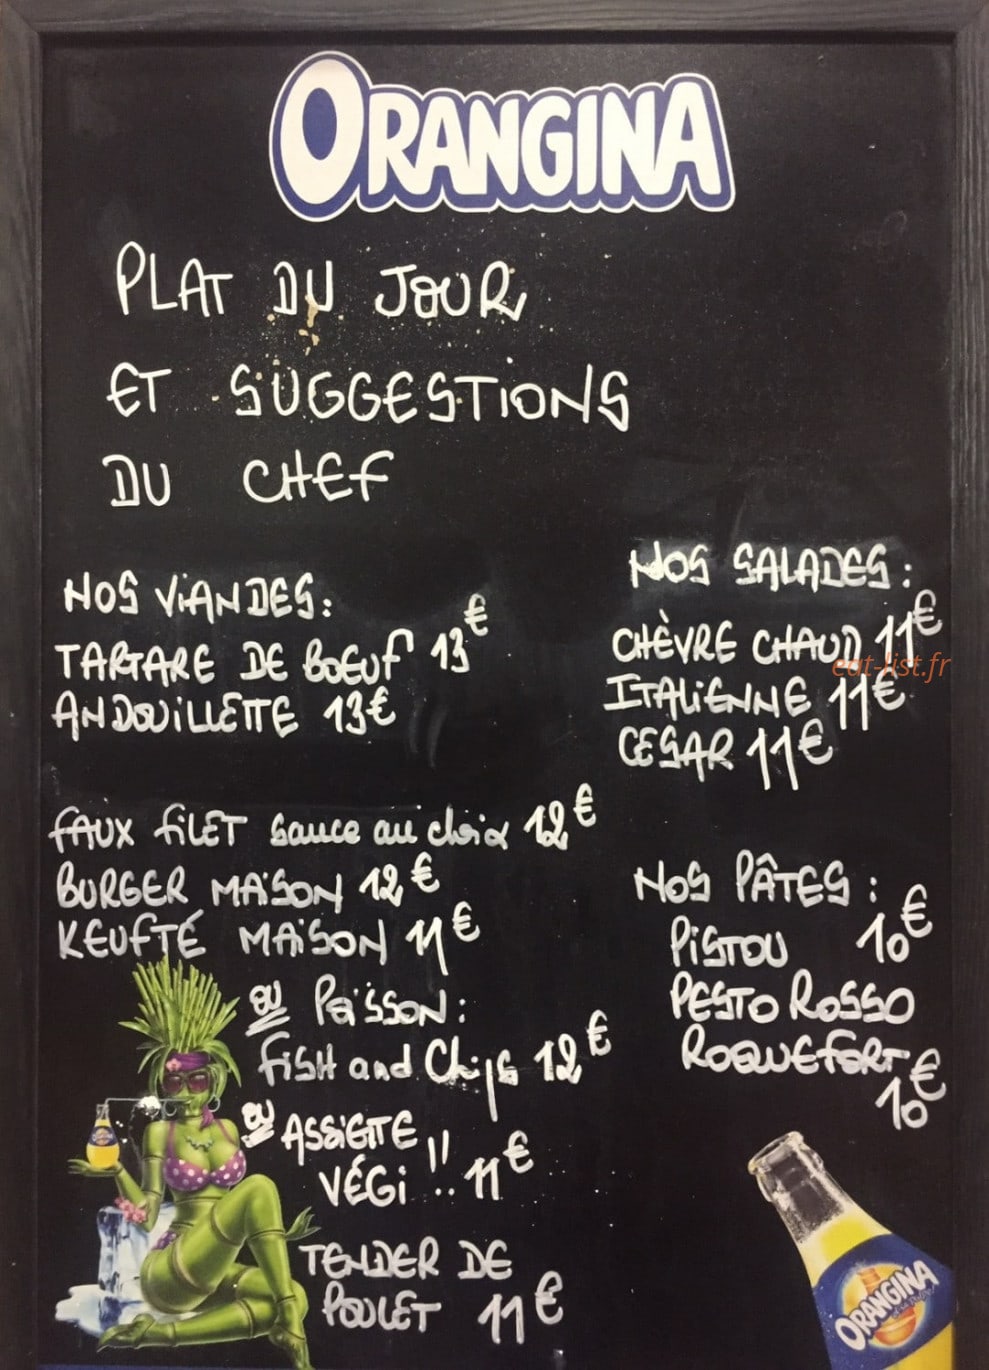 ORANGINA
PLAT DU JOUR
ET SUGGESTIONS
DU CHEF
NOS VIANDES:
TARTARE DE BOEUF 13€
ANDOUILLETTE 13€
FAUX FILET sauce au choix 12€
BURGER MAISON 12€
KEUFTÉ MAISON 11€
ou POISSON:
FISH and Chips 12€
ou ASSIETTE
VÉGI !! 11€
TENDER DE
POULET 11€
NOS SALADES:
CHÈVRE CHAUD 11€
eat-list.fr
ITALIENNE 11€
CESAR 11€
NOS PÂTES:
PISTOU 10€
PESTO ROSSO
ROQUEFORT
10€
ORANGINA